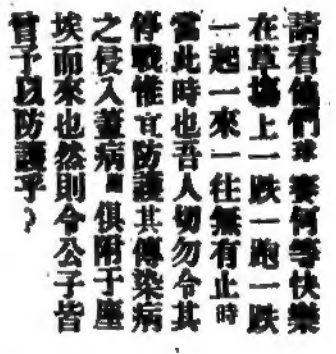 請看他們球賽何等快樂
在草場上一跌一跑一跌
一起一來一往無有止時
當此時也吾人切勿令其
停戰惟宜防護其傳染病
之侵入蓋病俱附于塵
埃而來也然則令公子皆
嘗予以防護乎？